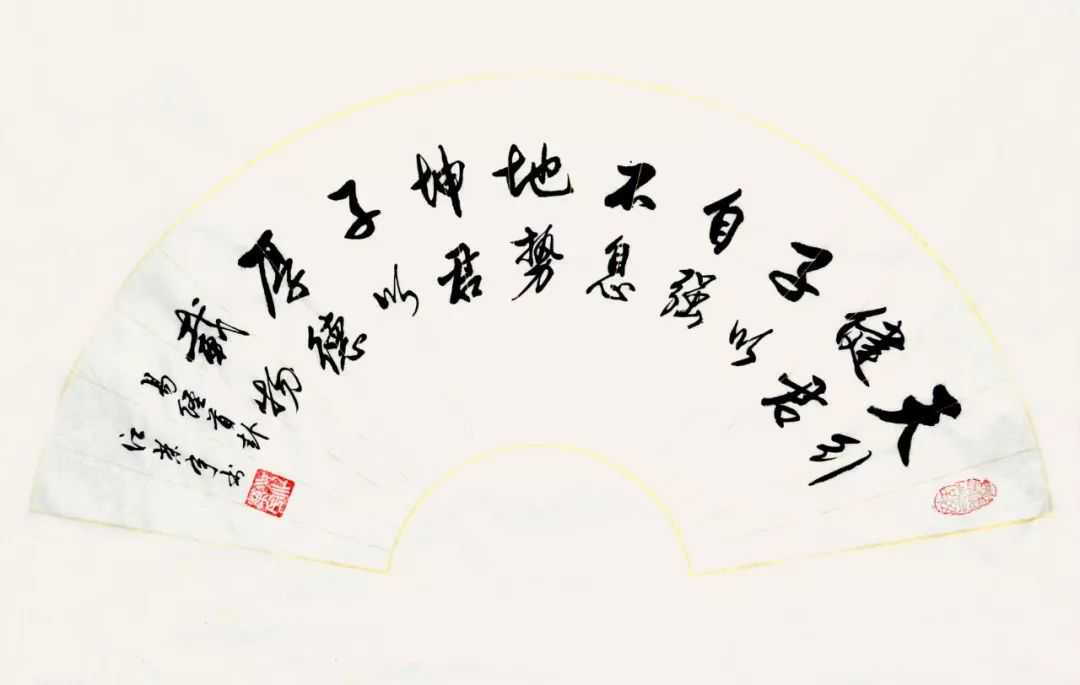 天行
健君
子以
自强
不息
地勢
坤君
子以
厚德
載物